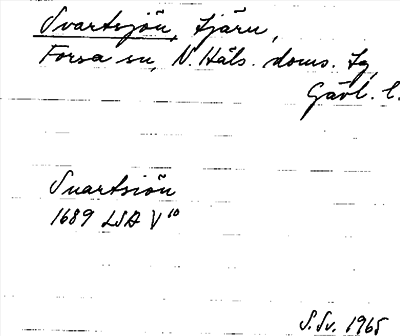 Svartsjön, tjärn,
Forsa sn, N. Häls. doms. tg,
Gävl. l.
Suartsiön
1689 LSA V¹⁰
S. Sv. 1965